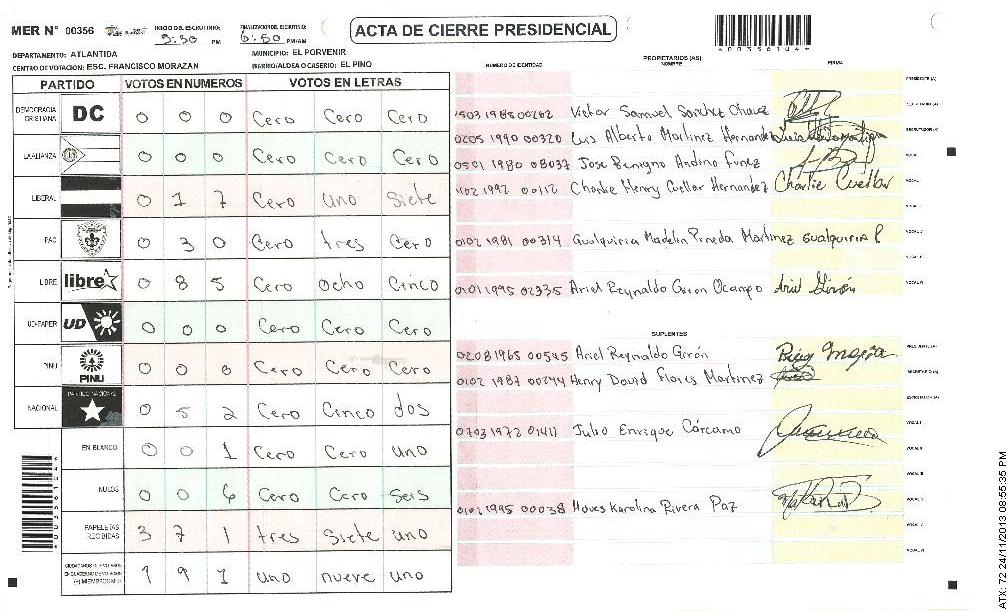 MER N° 00356
INICIO DEL ESCRUTINIO: 5:30 PM
FINALIZACION DEL ESCRUTINIO: 6:50 PM/AM
ACTA DE CIERRE PRESIDENCIAL
DEPARTAMENTO: ATLANTIDA
MUNICIPIO: EL PORVENIR
CENTRO DE VOTACION: ESC. FRANCISCO MORAZAN
BARRIO/ALDEA O CASERIO: EL PINO
PARTIDO VOTOS EN NUMEROS VOTOS EN LETRAS
DEMOCRACIA CRISTIANA DC 0 0 0 Cero Cero Cero
LA ALIANZA 0 0 0 Cero Cero Cero
LIBERAL 0 1 7 Cero uno Siete
PAC 0 3 0 Cero tres Cero
LIBRE libre 0 8 5 Cero ocho Cinco
UD-FAPER UD 0 0 0 Cero Cero Cero
PINU PINU 0 0 0 Cero Cero Cero
NACIONAL PARTIDO NACIONAL 0 5 2 Cero Cinco dos
EN BLANCO 0 0 1 Cero Cero uno
NULOS 0 0 6 Cero Cero Seis
PAPELETAS RECIBIDAS 3 7 1 tres Siete uno
1 9 1 uno nueve uno
NUMERO DE IDENTIDAD
PROPIETARIOS (AS)
NOMBRE
FIRMA
PRESIDENTE (A)
1503 1985 00202 Victor Samuel Sanchez Chavez
SECRETARIO (A)
0205 1990 00320 Luis Alberto Martinez Hernandez
ESCRUTADOR (A)
0501 1980 08037 Jose Benigno Andino Funez
VOCAL I
1102 1992 00112 Charlie Henry Cuellar Hernandez Charlie Cuellar
0102 1981 00314 Gualquiria Madelin Pineda Martinez Gualquiria P
0101 1995 02335 Ariel Reynaldo Giron Ocampo Ariel Girón
SUPLENTES
0208 1965 00545 Ariel Reynaldo Girón
PRESIDENTE (A)
0102 1987 00244 Henry David Flores Martinez
SECRETARIO (A)
ESCRUTADOR (A)
0703 1972 01411 Julio Enrique Cárcamo
VOCAL I
VOCAL II
VOCAL III
0101 1995 00038 Karolina Rivera Paz
ATX: 72 24/11/2013 08:55:35 PM